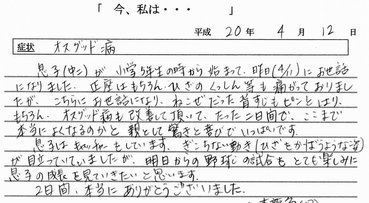 「 今、私は・・・ 」
平成 20年 4月 12日
症状 オスグッド病
息子(中二)が小学5年生の時から始まって、昨日(4/11)にお世話
になりました。正座はもちろん、ひざのくっしん等も痛がっておりまし
たが、こちらにお世話になり、ねこぜだった首すじもピンとはり、
もちろん、オスグッド病も改善して頂いて、たった二日間で、ここまで
本当によくなるのかと親として驚きと喜びでいっぱいです。
息子は をしています。ぎこちない動き(ひざをかばうような姿)
が目立っていましたが、明日からの野球の試合もとても楽しみに
息子の成長を見ていきたいと思います。
2日間、本当にありがとうございました。